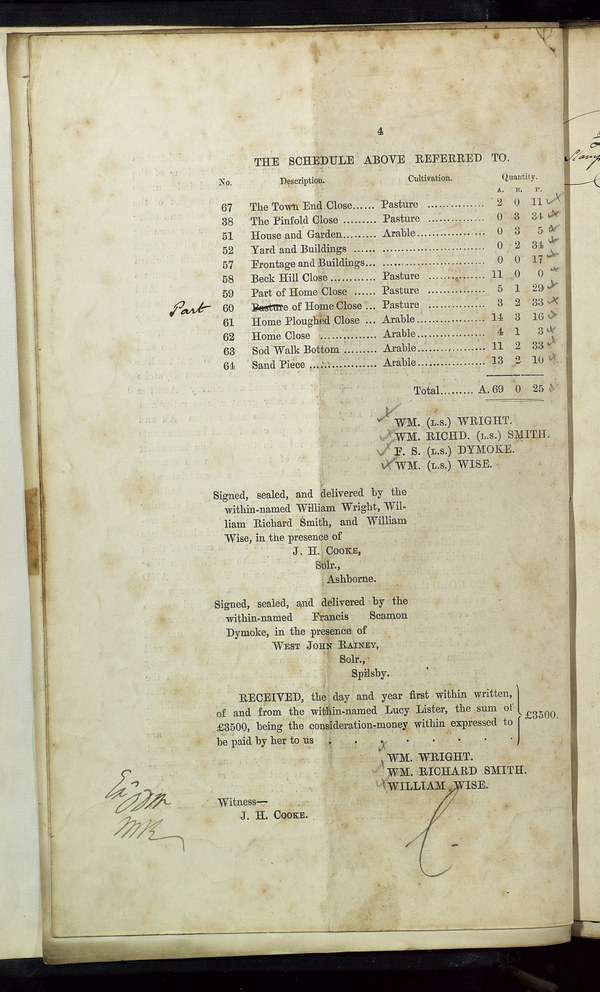 4
THE SCHEDULE ABOVE REFERRED TO.
No. Description. Cultivation. Quantity.
A. R. P.
67 The Town End Close...... Pasture ............... 2 0 11
38 The Pinfold Close ......... Pasture ............... 0 3 34
51 House and Garden......... Arable.................. 0 3 5
52 Yard and Buildings ...... .......................... 0 2 34
57 Frontage and Buildings... .......................... 0 0 17
58 Beck Hill Close............ Pasture ............... 11 0 0
59 Part of Home Close ...... Pasture ............... 5 1 29
Part 60 Pasture of Home Close ... Pasture ............... 3 2 33
61 Home Ploughed Close ... Arable.................. 14 3 16
62 Home Close ............... Arable.................. 4 1 3
63 Sod Walk Bottom ......... Arable.................. 11 2 33
64 Sand Piece .................. Arable.................. 13 2 10
Total......... A. 69 0 25
WM. (L.S.) WRIGHT.
WM. RICHD. (L.S.) SMITH.
F. S. (L.S.) DYMOKE.
WM. (L.S.) WISE.
Signed, sealed, and delivered by the
within-named William Wright, Wil-
liam Richard Smith, and William
Wise, in the presence of
J. H. COOKE,
Solr.,
Ashborne.
Signed, sealed, and delivered by the
within-named Francis Scamon
Dymoke, in the presence of
WEST JOHN RAINEY,
Solr.,
Spilsby.
RECEIVED, the day and year first within written,
of and from the within-named Lucy Lister, the sum of
£3500, being the consideration-money within expressed to
be paid by her to us . . . . . . . .
£3500.
WM. WRIGHT.
WM. RICHARD SMITH.
WILLIAM WISE.
Witness—
J. H. COOKE.